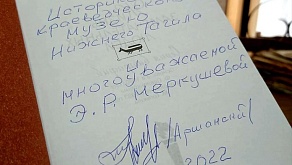 Историко
краеведческому
музею
Нижнего Тагила
и
многоуважаемой
Э. Р. Меркушевой
/Аршанский/
2022